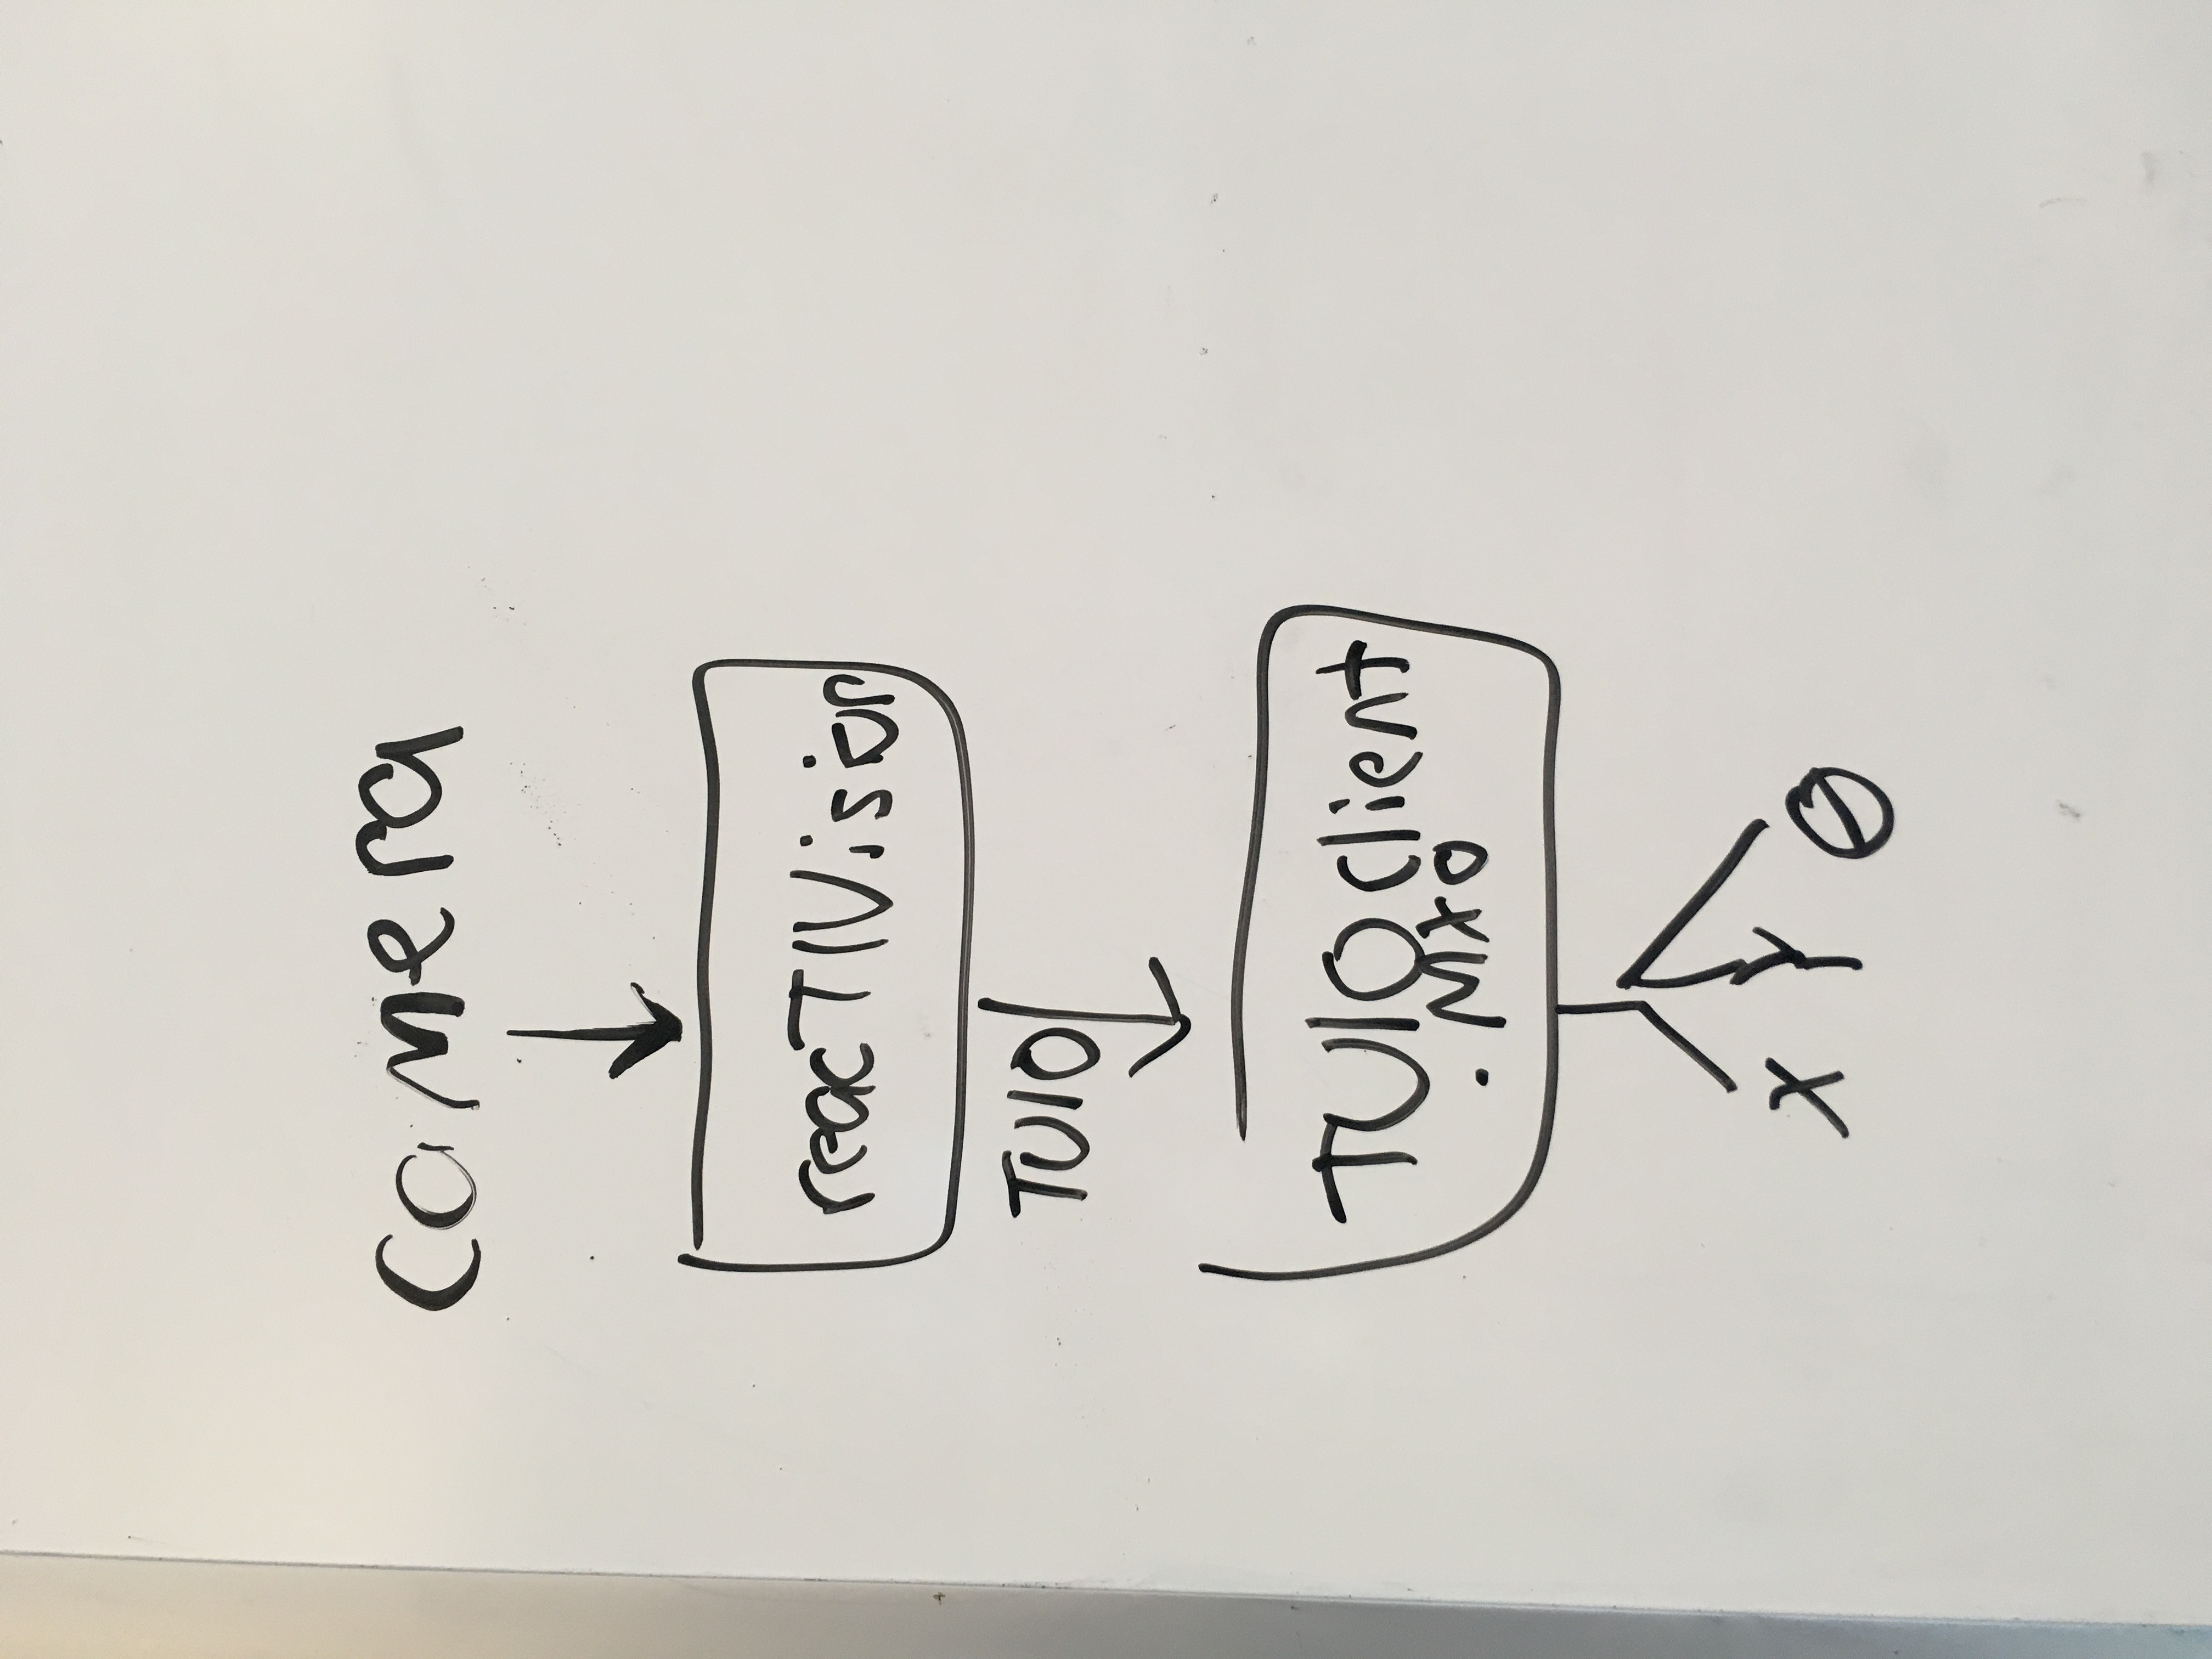 camera
reacTIVision
TUIO
TUIO client
.mxo
X Y Θ